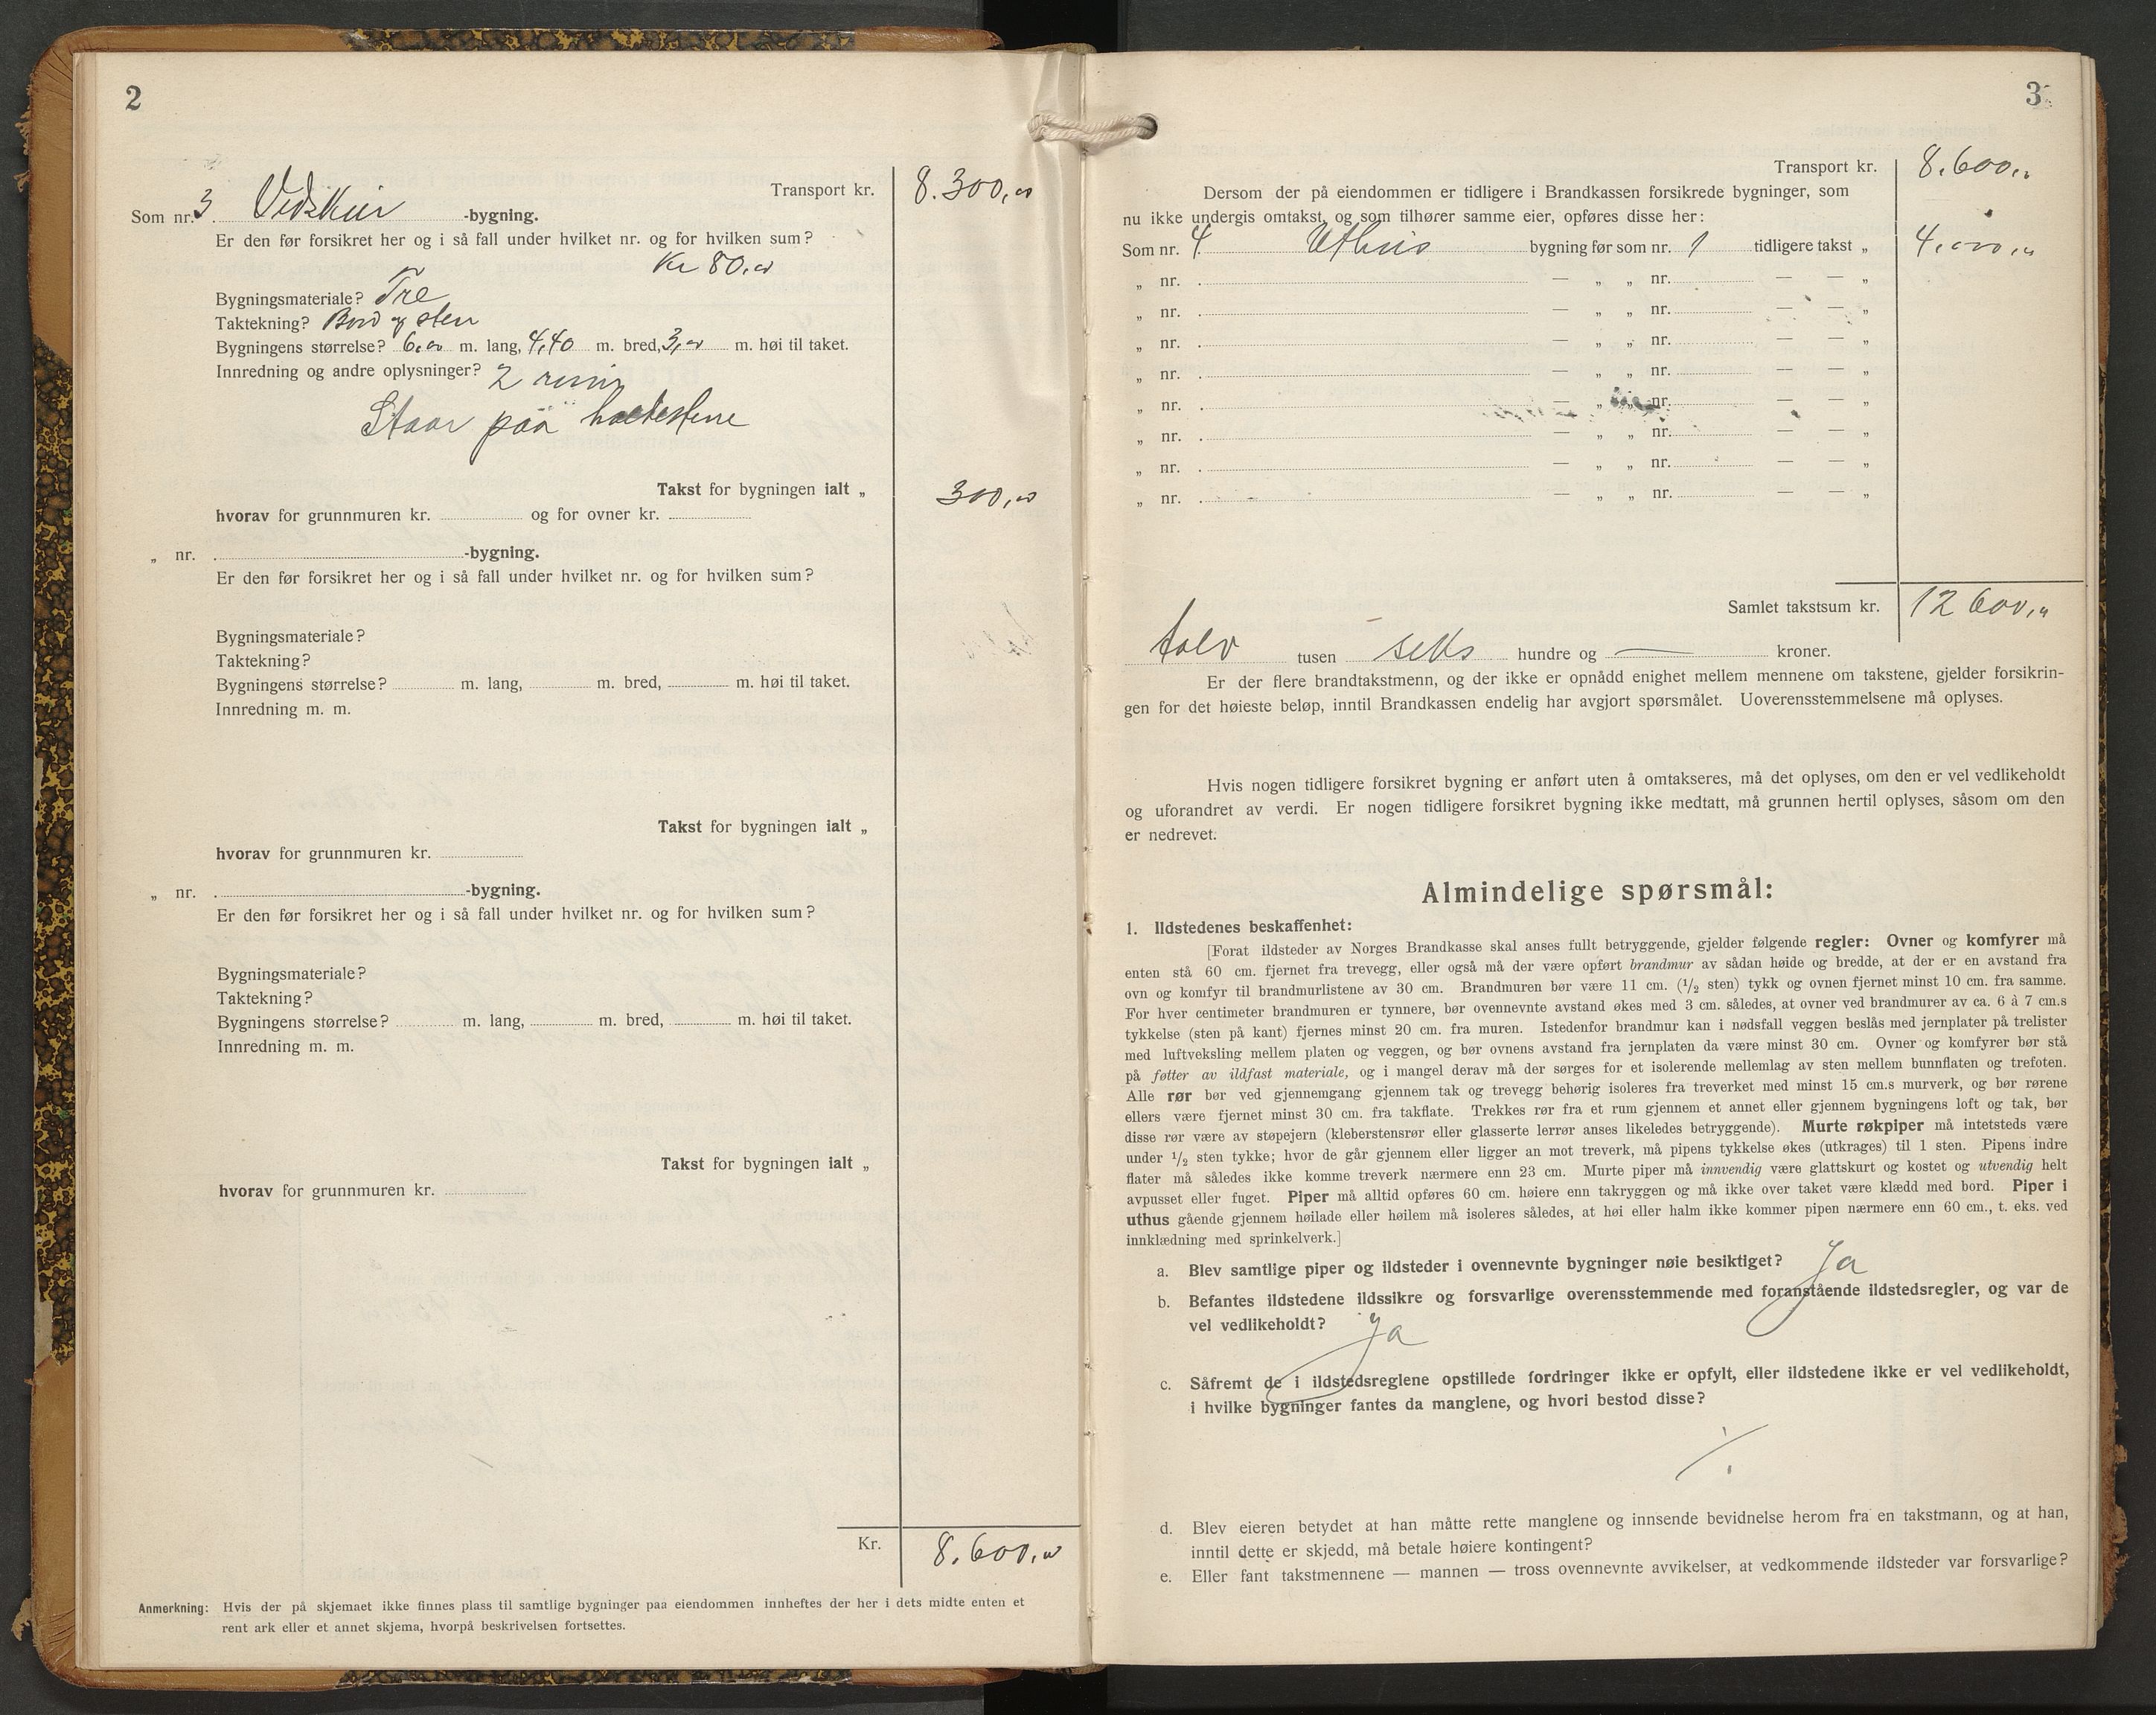 2
Transport kr. 8.300,00
Som nr. 3. Vedskur -bygning.
Er den før forsikret her og i så fall under hvilket nr. og for hvilken sum?
Kr 80,00
Bygningsmateriale? Tre
Taktekning? Bord og sten
Bygningens størrelse? 6,00 m. lang, 4,40 m. bred, 3,00 m. høi til taket.
Innredning og andre oplysninger? 2 rum
Staar paa
Takst for bygningen ialt „ 300,00
hvorav for grunnmuren kr. og for ovner kr.
„ nr. -bygning.
Er den før forsikret her og i så fall under hvilket nr. og for hvilken sum?
Bygningsmateriale?
Taktekning?
Bygningens størrelse? m. lang, m. bred, m. høi til taket.
Innredning m. m.
Takst for bygningen ialt „
hvorav for grunnmuren kr.
„ nr. -bygning.
Er den før forsikret her og i så fall under hvilket nr. og for hvilken sum?
Bygningsmateriale?
Taktekning?
Bygningens størrelse? m. lang, m. bred, m. høi til taket.
Innredning m. m.
Takst for bygningen ialt „
hvorav for grunnmuren kr.
Kr. 8.600,00
Anmerkning: Hvis der på skjemaet ikke finnes plass til samtlige bygninger paa eiendommen innheftes der her i dets midte enten et
rent ark eller et annet skjema, hvorpå beskrivelsen fortsettes.
3
Transport kr. 8.600,00
Dersom der på eiendommen er tidligere i Brandkassen forsikrede bygninger, som
nu ikke undergis omtakst, og som tilhører samme eier, opføres disse her:
Som nr. 4. Uthus bygning før som nr. 1 tidligere takst „ 4.000,00
„ nr. . — „ „ nr. — — „
„ nr. . — „ „ nr. — — „
„ nr. . — „ „ nr. — — „
„ nr. . — „ „ nr. — — „
„ nr. . — „ „ nr. — — „
„ nr. . — „ „ nr. — — „
„ nr. . — „ „ nr. — — „
„ nr. . — „ „ nr. — — „
Samlet takstsum kr. 12600,00
tolv tusen seks hundre og — kroner.
Er der flere brandtakstmenn, og der ikke er opnådd enighet mellem mennene om takstene, gjelder forsikrin-
gen for det høieste beløp, inntil Brandkassen endelig har avgjort spørsmålet. Uoverensstemmelsene må oplyses.
Hvis nogen tidligere forsikret bygning er anført uten å omtakseres, må det oplyses, om den er vel vedlikeholdt
og uforandret av verdi. Er nogen tidligere forsikret bygning ikke medtatt, må grunnen hertil oplyses, såsom om den
er nedrevet.
Almindelige spørsmål:
1. Ildstedenes beskaffenhet:
[Forat ildsteder av Norges Brandkasse skal anses fullt betryggende, gjelder følgende regler: Ovner og komfyrer må
enten stå 60 cm. fjernet fra trevegg, eller også må der være opført brandmur av sådan høide og bredde, at der er en avstand fra
ovn og komfyr til brandmurlistene av 30 cm. Brandmuren bør være 11 cm. (½ sten) tykk og ovnen fjernet minst 10 cm. fra samme.
For hver centimeter brandmuren er tynnere, bør ovennevnte avstand økes med 3 cm. således, at ovner ved brandmurer av ca. 6 à 7 cm.s
tykkelse (sten på kant) fjernes minst 20 cm. fra muren. Istedenfor brandmur kan i nødsfall veggen beslås med jernplater på trelister
med luftveksling mellem platen og veggen, og bør ovnens avstand fra jernplaten da være minst 30 cm. Ovner og komfyrer bør stå
på føtter av ildfast materiale, og i mangel derav må der sørges for et isolerende mellemlag av sten mellem bunnflaten og trefoten.
Alle rør bør ved gjennemgang gjennem tak og trevegg behørig isoleres fra treverket med minst 15 cm.s murverk, og bør rørene
ellers være fjernet minst 30 cm. fra takflate. Trekkes rør fra et rum gjennem et annet eller gjennem bygningens loft og tak, bør
disse rør være av støpejern (kleberstensrør eller glasserte lerrør anses likeledes betryggende). Murte røkpiper må intetsteds være
under ½ sten tykke; hvor de går gjennem eller ligger an mot treverk, må pipens tykkelse økes (utkrages) til 1 sten. Pipens indre
flater må således ikke komme treverk nærmere enn 23 cm. Murte piper må innvendig være glattskurt og kostet og utvendig helt
avpusset eller fuget. Piper må alltid opføres 60 cm. høiere enn takryggen og må ikke over taket være klædd med bord. Piper i
uthus gående gjennem høilade eller høilem må isoleres således, at høi eller halm ikke kommer pipen nærmere enn 60 cm., t. eks. ved
innklædning med sprinkelverk.]
a. Blev samtlige piper og ildsteder i ovennevnte bygninger nøie besiktiget? Ja
b. Befantes ildstedene ildssikre og forsvarlige overensstemmende med foranstående ildstedsregler, og var de
vel vedlikeholdt? Ja
c. Såfremt de i ildstedsreglene opstillede fordringer ikke er opfylt, eller ildstedene ikke er vel vedlikeholdt,
i hvilke bygninger fantes da manglene, og hvori bestod disse?
÷
d. Blev eieren betydet at han måtte rette manglene og innsende bevidnelse herom fra en takstmann, og at han,
inntil dette er skjedd, må betale høiere kontingent?
e. Eller fant takstmennene — mannen — tross ovennevnte avvikelser, at vedkommende ildsteder var forsvarlige?